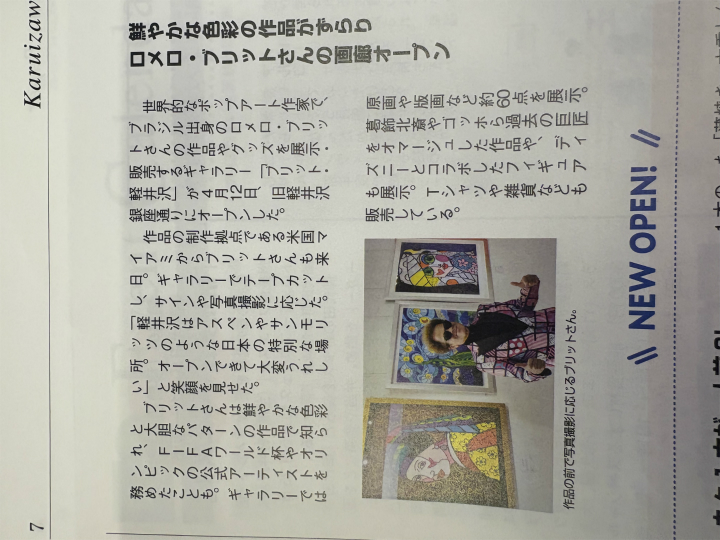 7
Karuizaw
鮮やかな色彩の作品がずらり
ロメロ・ブリットさんの画廊オープン
世界的なポップアート作家で、
ブラジル出身のロメロ・ブリッ
トさんの作品やグッズを展示・
販売するギャラリー「ブリット・
軽井沢」が4月12日、旧軽井沢
銀座通りにオープンした。
作品の制作拠点である米国マ
イアミからブリットさんも来
日。ギャラリーでテープカット
し、サインや写真撮影に応じた。
「軽井沢はアスペンやサンモリ
ッツのような日本の特別な場
所。オープンできて大変うれし
い」と笑顔を見せた。
ブリットさんは鮮やかな色彩
と大胆なパターンの作品で知ら
れ、FIFAワールド杯やオリ
ンピックの公式アーティストを
務めたことも。ギャラリーでは
原画や版画など約60点を展示。
葛飾北斎やゴッホら過去の巨匠
をオマージュした作品や、ディ
ズニーとコラボしたフィギュア
も展示。Tシャツや雑貨なども
販売している。
作品の前で写真撮影に応じるブリットさん。
NEW OPEN!